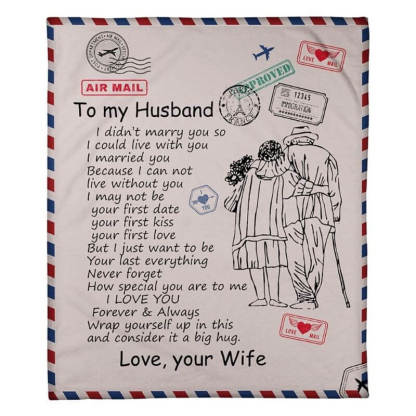 AIR MAIL
APPROVED
LOVE MAIL
12345
To my Husband
I didn't marry you so
I could live with you
I married you
Because I can not
live without you
I may not be
your first date
your first kiss
your first love
But I just want to be
Your last everything
Never forget
How special you are to me
I LOVE YOU
Forever & Always
Wrap yourself up in this
and consider it a big hug.
Love, your Wife
YOU
LOVE MAIL
LOVE MAIL